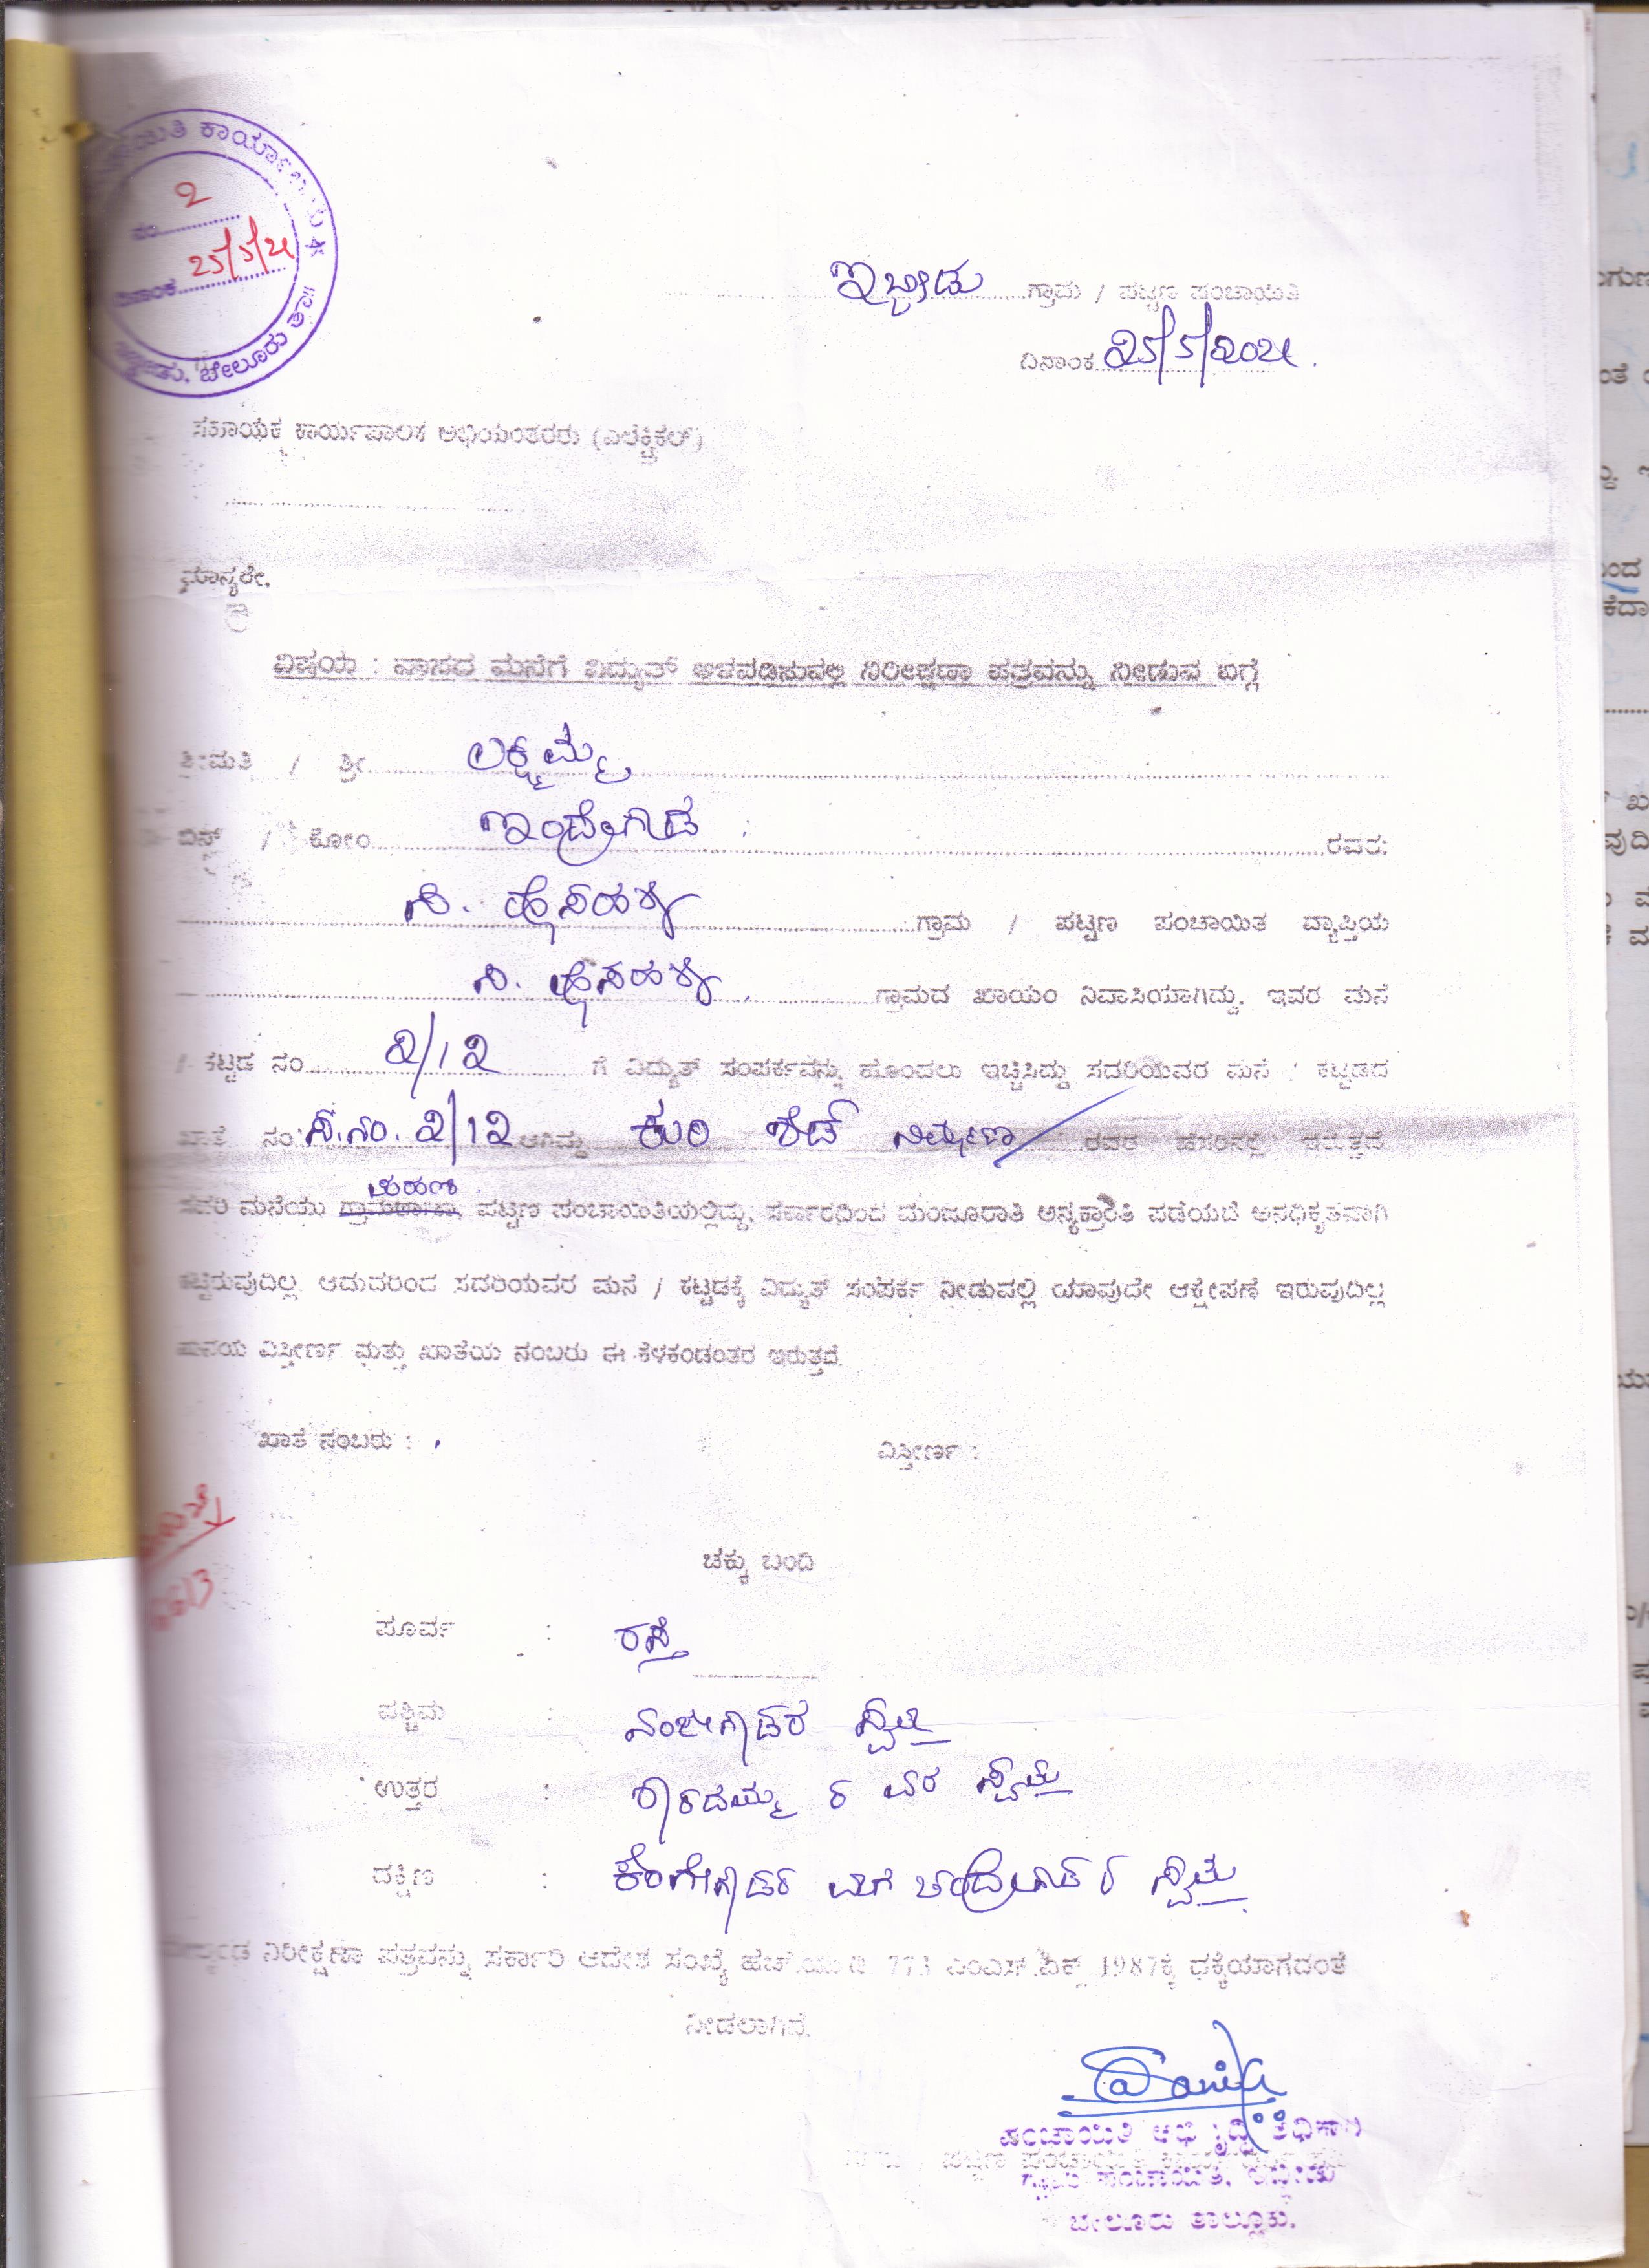 ಕಾರ್ಯಾಲಯ
ನಂ. 2
ದಿನಾಂಕ 25/5/21
ಬೇಲೂರು
ಇಬ್ಬೀಡು ಗ್ರಾಮ / ಪಟ್ಟಣ ಪಂಚಾಯತಿ
ದಿನಾಂಕ 25/5/2021.
ಸಹಾಯಕ ಕಾರ್ಯಪಾಲಕ ಅಭಿಯಂತರರು (ಎಲೆಕ್ಟ್ರಿಕಲ್)
ಮಾನ್ಯರೇ,
ವಿಷಯ : ವಾಸದ ಮನೆಗೆ ವಿದ್ಯುತ್ ಅಳವಡಿಸುವಲ್ಲಿ ನಿರೀಕ್ಷಣಾ ಪತ್ರವನ್ನು ನೀಡುವ ಬಗ್ಗೆ
ಶ್ರೀಮತಿ / ಶ್ರೀ ಲಕ್ಷ್ಮಮ್ಮ
ಬಿನ್ / ಕೋಂ ಇಂದ್ರೇಗೌಡ ರವರು
ಗ್ರಾಮ / ಪಟ್ಟಣ ಪಂಚಾಯಿತ ವ್ಯಾಪ್ತಿಯ
ಗ್ರಾಮದ ಖಾಯಂ ನಿವಾಸಿಯಾಗಿದ್ದು, ಇವರ ಮನೆ
/ ಕಟ್ಟಡ ನಂ 2/12 ಗೆ ವಿದ್ಯುತ್ ಸಂಪರ್ಕವನ್ನು ಹೊಂದಲು ಇಚ್ಚಿಸಿದ್ದು ಸದರಿಯವರ ಮನೆ / ಕಟ್ಟಡದ
ಖಾತೆ ನಂ ಸ.ನಂ. 2/12 ಆಗಿದ್ದು ಕುರಿ ಶೆಡ್ ನಿರ್ಮಾಣ ರವರ ಹೆಸರಿನಲ್ಲಿ ಇರುತ್ತದೆ
ಸದರಿ ಮನೆಯು ಪಟ್ಟಣ ಪಂಚಾಯತಿಯಲ್ಲಿದ್ದು, ಸರ್ಕಾರದಿಂದ ಮಂಜೂರಾತಿ ಅನ್ಯಕ್ರಾಂತಿ ಪಡೆಯದೆ ಅನಧಿಕೃತವಾಗಿ
ಕಟ್ಟಿರುವುದಿಲ್ಲ. ಆದುದರಿಂದ ಸದರಿಯವರ ಮನೆ / ಕಟ್ಟಡಕ್ಕೆ ವಿದ್ಯುತ್ ಸಂಪರ್ಕ ನೀಡುವಲ್ಲಿ ಯಾವುದೇ ಆಕ್ಷೇಪಣೆ ಇರುವುದಿಲ್ಲ
ವಿಸ್ತೀರ್ಣ ಮತ್ತು ಖಾತೆಯ ನಂಬರು ಈ ಕೆಳಕಂಡಂತರ ಇರುತ್ತದೆ.
ಖಾತೆ ನಂಬರು :
ವಿಸ್ತೀರ್ಣ :
ಚಕ್ಕು ಬಂದಿ
ಪೂರ್ವ : ರಸ್ತೆ
ಪಶ್ಚಿಮ : ನಂಜೇಗೌಡರ ಸ್ವತ್ತು
ಉತ್ತರ : ರವರ ಸ್ವತ್ತು
ದಕ್ಷಿಣ : ಕೆಂಗೇಗೌಡರ ಮಗ ಚಂದ್ರೇಗೌಡರ ಸ್ವತ್ತು
ನಿರೀಕ್ಷಣಾ ಪತ್ರವನ್ನು ಸರ್ಕಾರಿ ಆದೇಶ ಸಂಖ್ಯೆ ಹೆಚ್.ಯು.ಡಿ. 773 ಎಂಎನ್.ಎಕ್ಸ್ 1987ಕ್ಕೆ ಧಕ್ಕೆಯಾಗದಂತೆ
ನೀಡಲಾಗಿದೆ.
ಪಂಚಾಯಿತಿ ಅಭಿವೃದ್ಧಿ ಅಧಿಕಾರಿ
ಗ್ರಾಮ ಪಂಚಾಯಿತಿ, ಇಬ್ಬೀಡು
ಬೇಲೂರು ತಾಲ್ಲೂಕು.